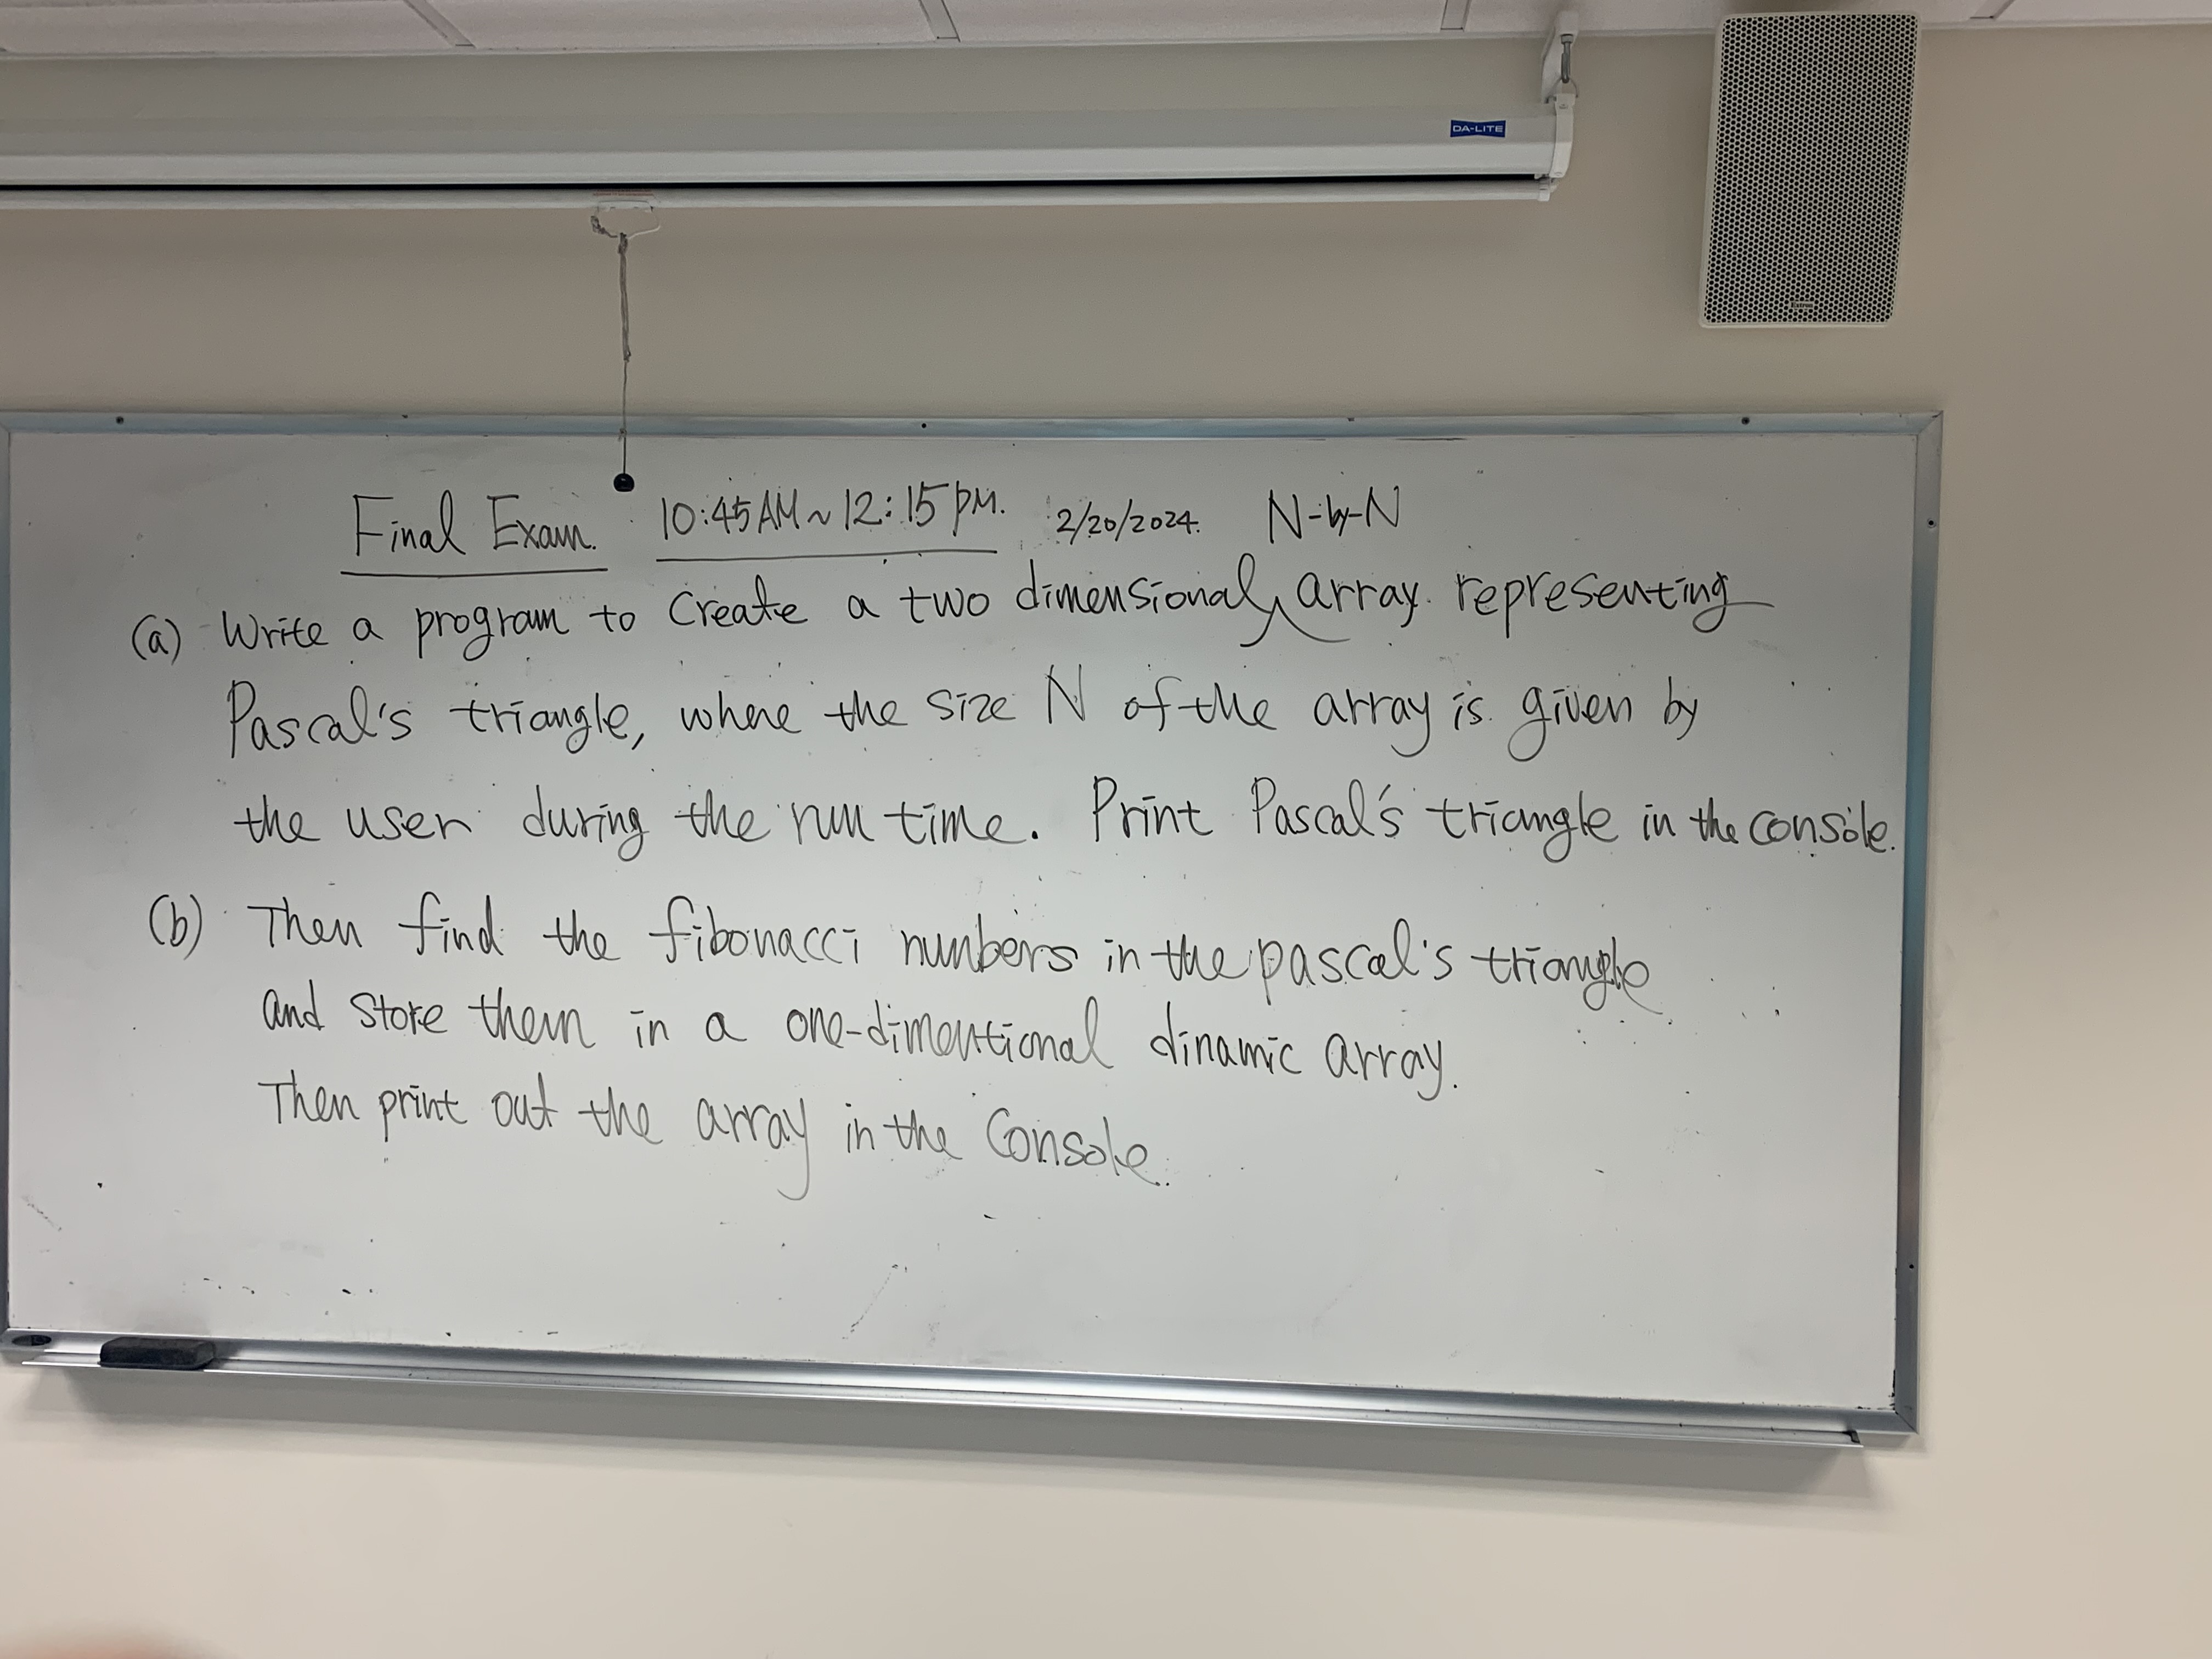 DA-LITE
Final Exam. 10:45AM~12:15PM. 2/20/2024. N-by-N
(a) Write a program to Create a two dimensional array. representing
Pascal's triangle, where the size N of the array is given by
the user during the run time. Print Pascal's triangle in the console.
(b) Then find the fibonacci numbers in the pascal's triangle
and store them in a one-dimentional dinamic array.
Then print out the array in the Console.